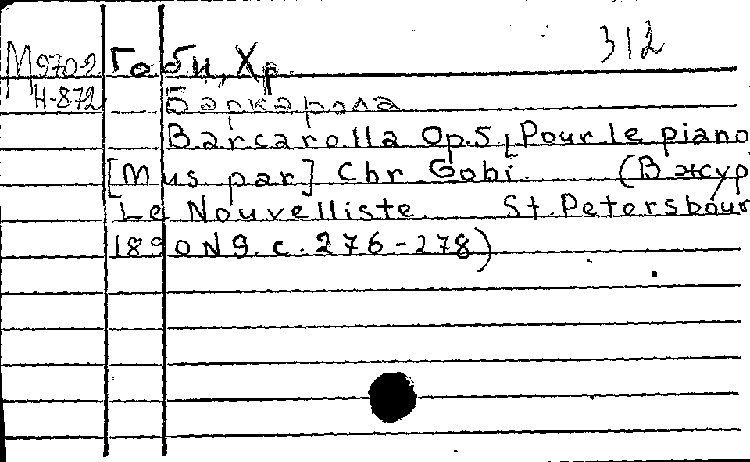 312
М970-2 Гоби, Хр.
Н-872 Баркарола
Barcarolla Op.5, Pour le piano
[Mus par] Chr Gobi. (В жур
Le Nouvelliste St. Petersbour
1890 N9. с. 276-278)